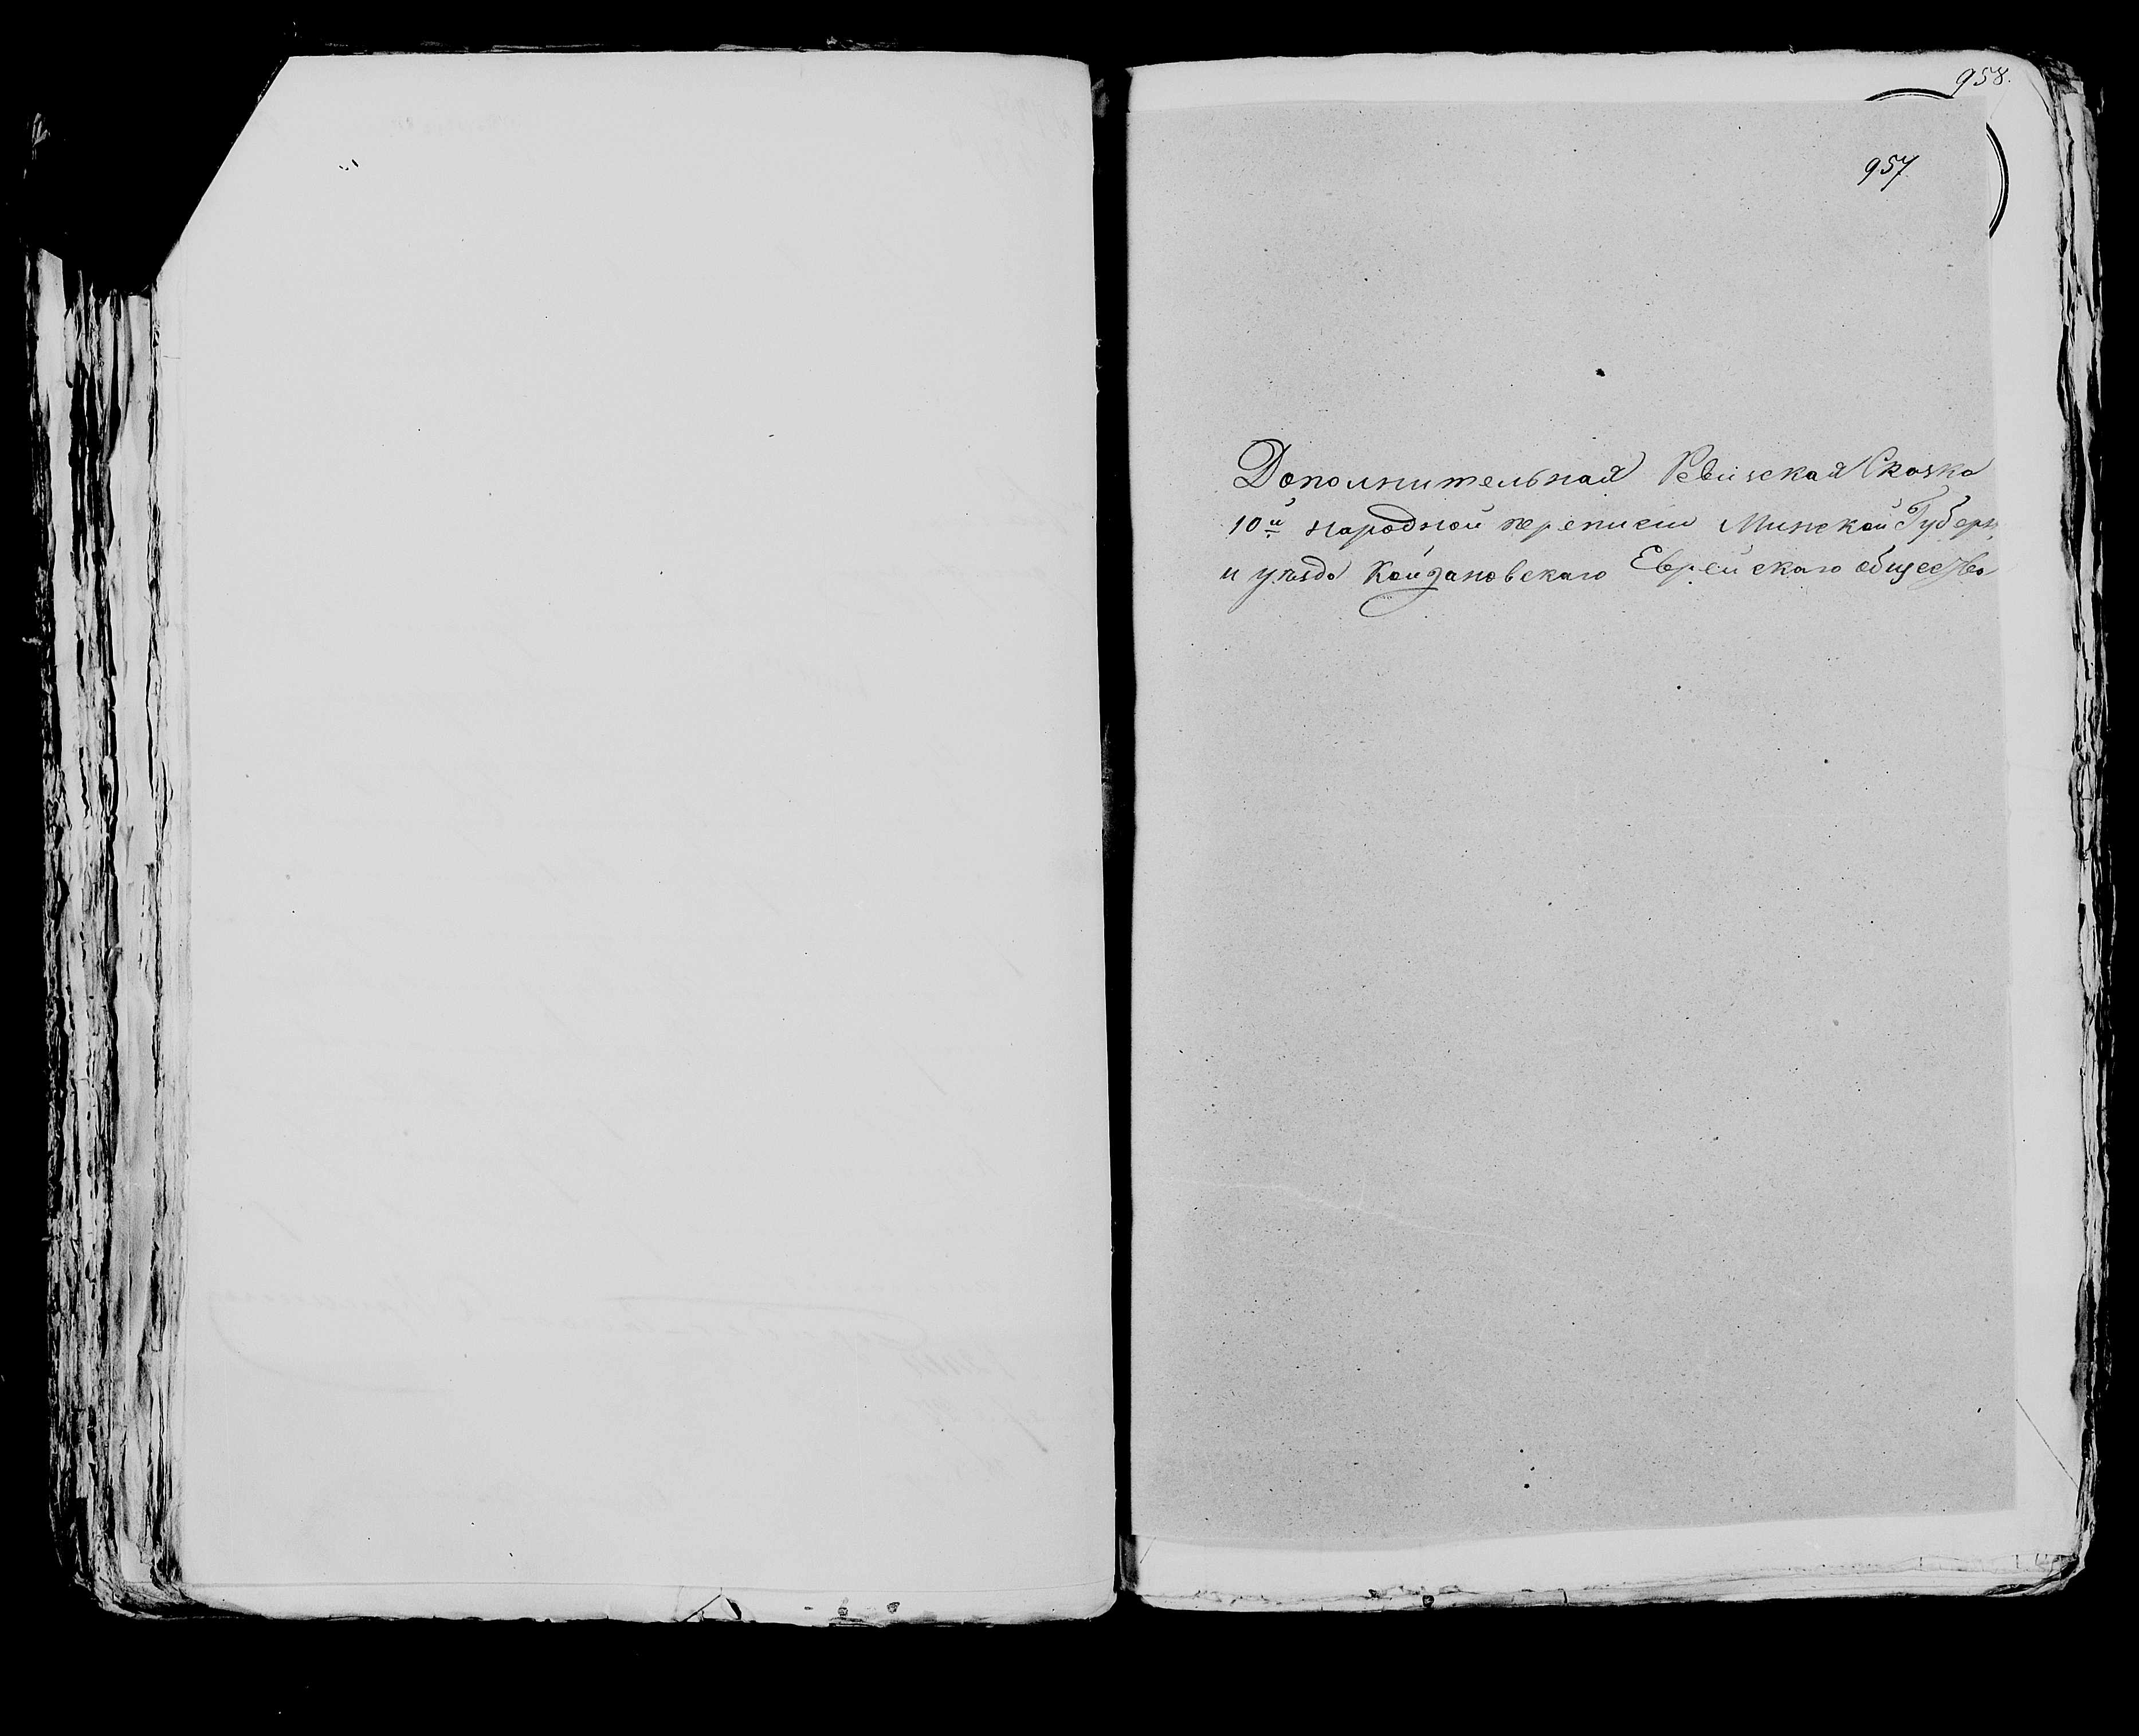 958.
957
Дополнительная Ревизская Сказка
10й народной переписи Минской Губерн.
и уѣзда Койдановскаго Еврейскаго общества